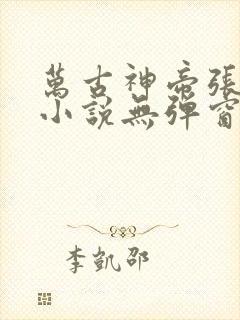 萬古神帝張
小說無彈窗
李凱邵